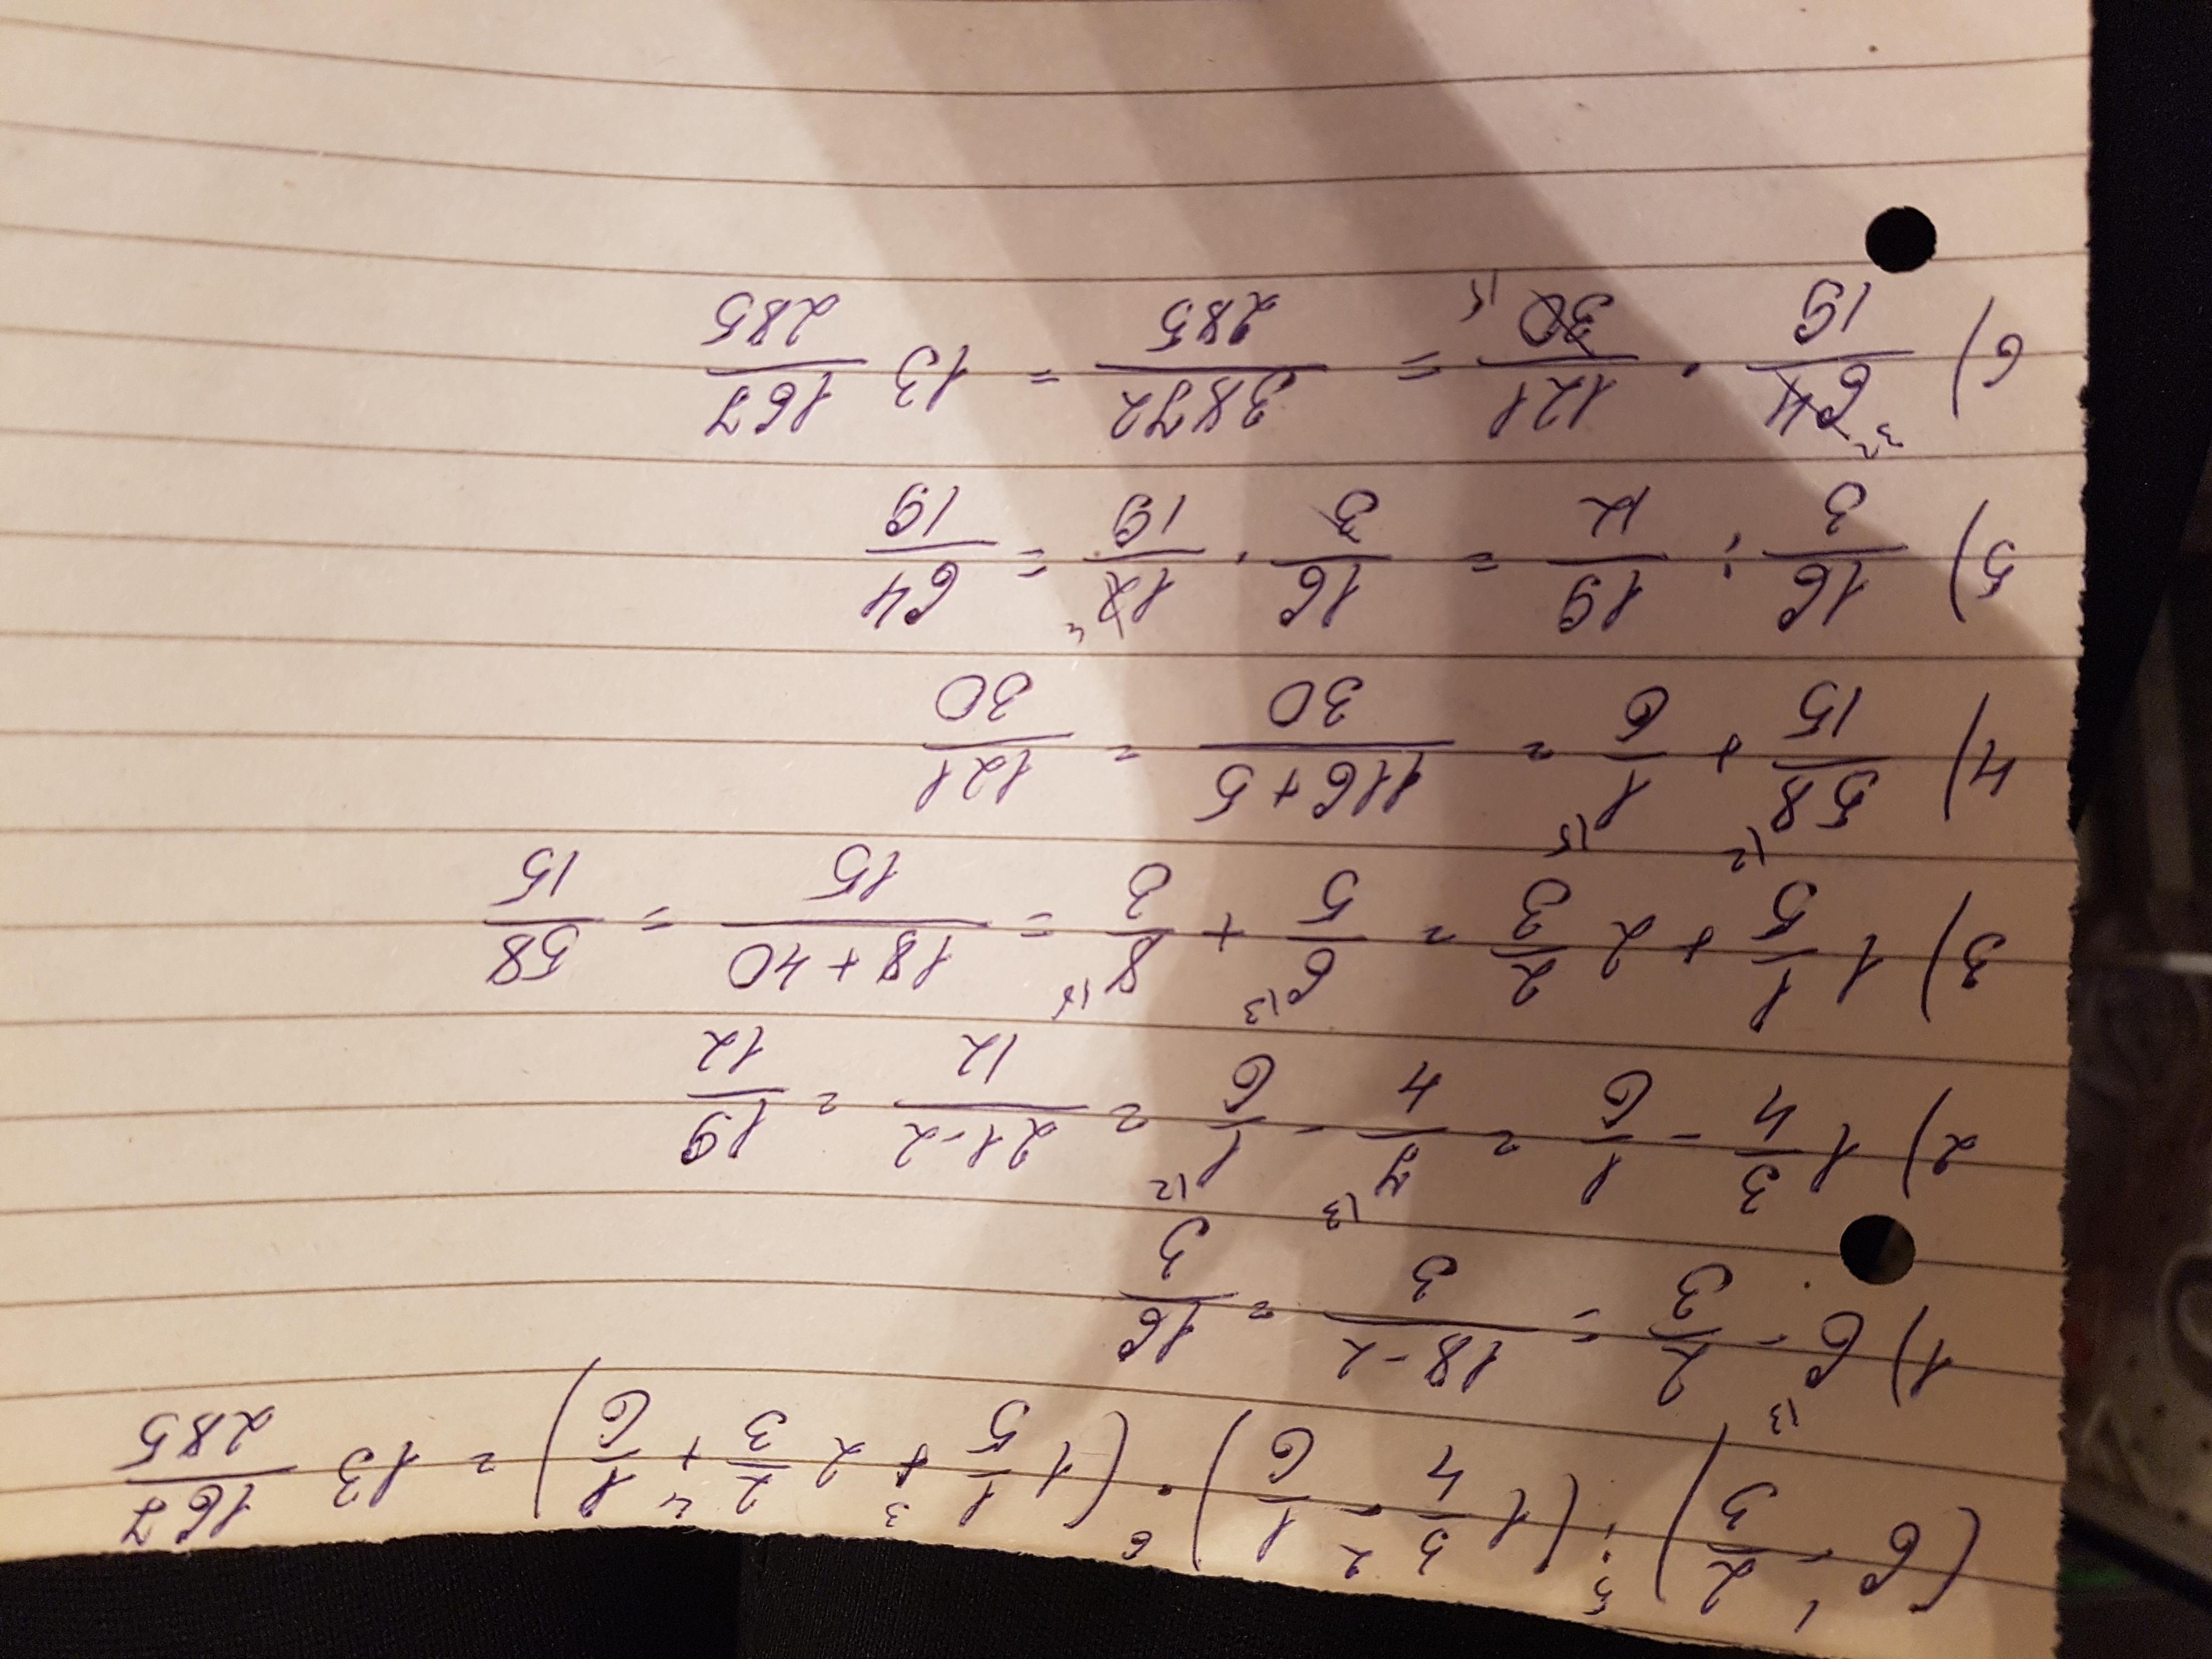 (6 - 2/3) : (1 3/4 - 1/6) · (1 1/5 + 2 2/3 + 1/6) = 13 167/285
1) 6 - 2/3 = 18-2/3 = 16/3
2) 1 3/4 - 1/6 = 7/4 - 1/6 = 21-2/12 = 19/12
3) 1 1/5 + 2 2/3 = 6/5 + 8/3 = 18+40/15 = 58/15
4) 58/15 + 1/6 = 116+5/30 = 121/30
5) 16/3 : 19/12 = 16/3 · 12/19 = 64/19
6) 64/19 · 121/30 = 3872/285 = 13 167/285